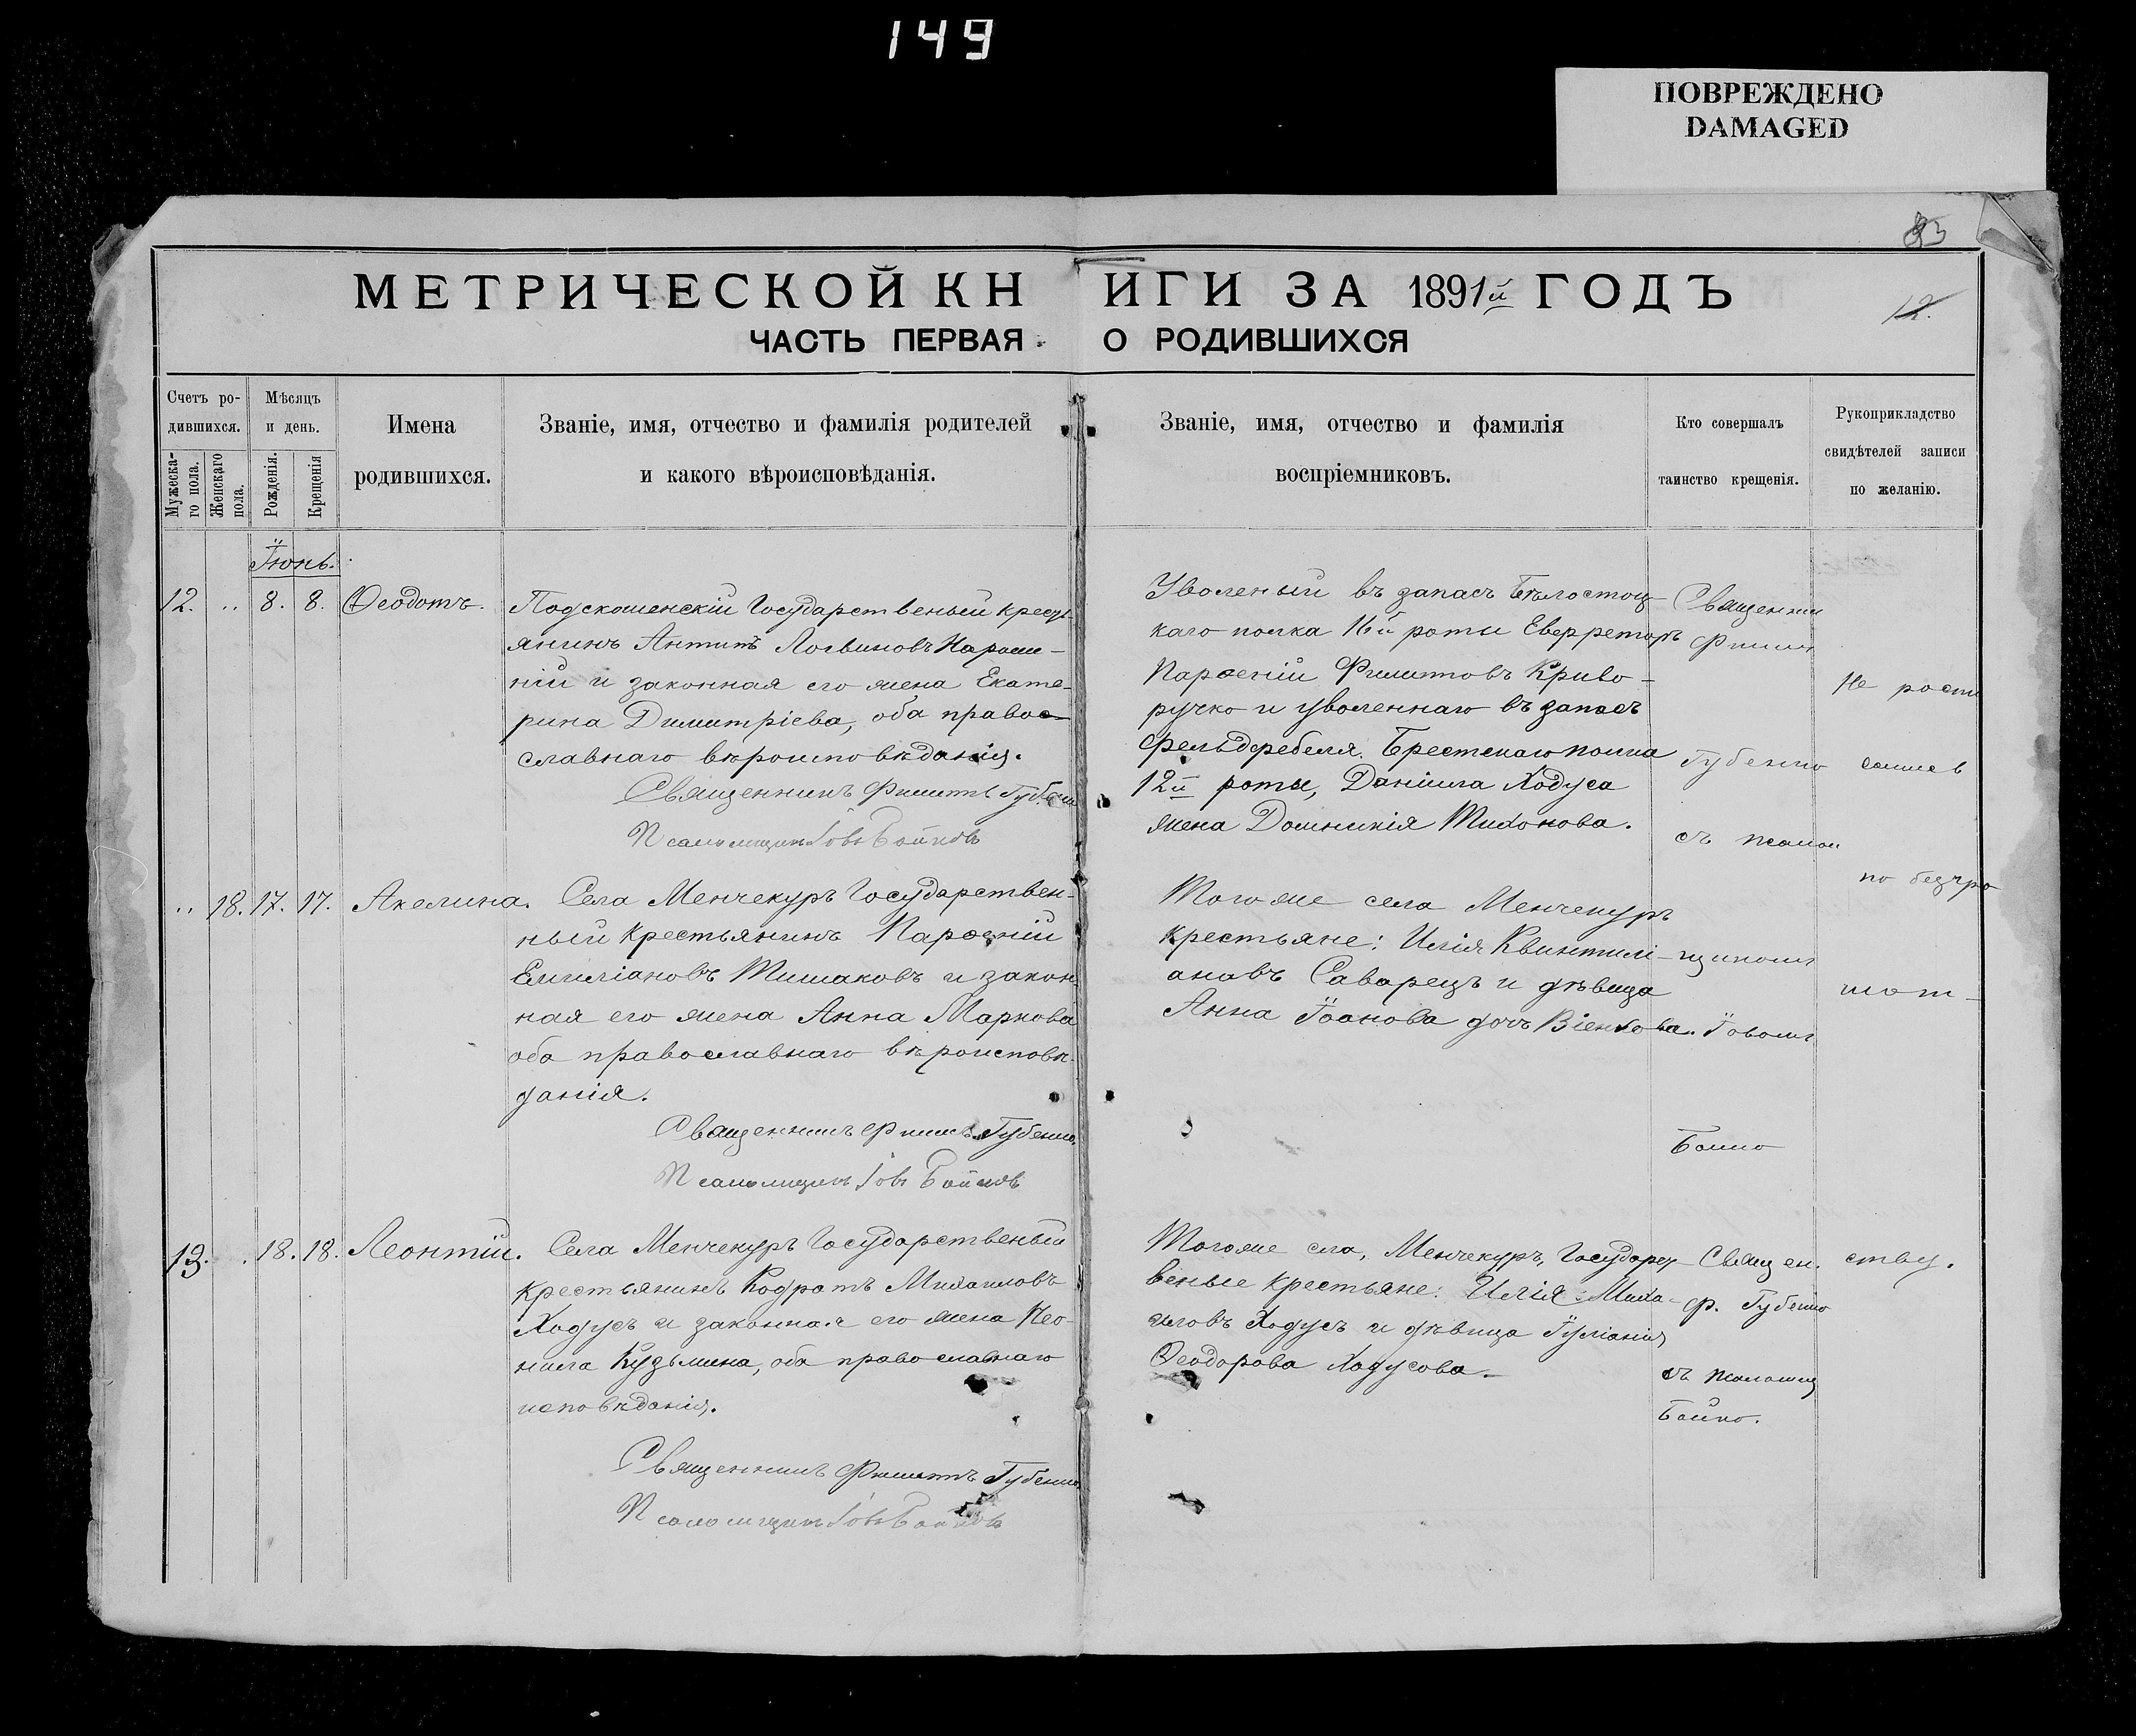 149
ПОВРЕЖДЕНО
DAMAGED
83
12.
МЕТРИЧЕСКОЙ КНИГИ ЗА 1891й ГОДЪ
ЧАСТЬ ПЕРВАЯ О РОДИВШИХСЯ
Счетъ ро-
дившихся.
Мужеска-
го пола.
Женскаго
пола.
Мѣсяцъ
и день.
Рожденія.
Крещенія
Имена
родившихся.
Званіе, имя, отчество и фамилія родителей
и какого вѣроисповѣданія.
Званіе, имя, отчество и фамилія
воспріемниковъ.
Кто совершалъ
таинство крещенія.
Рукоприкладство
свидѣтелей записи
по желанію.
Іюнь.
12. .. 8. 8. Ѳеодотъ.
Государственый кресть-
янинъ Антипъ Логвиновъ
и законная его жена Екате-
рина Димитріева, оба право-
славнаго вѣроисповѣданія.
Священникъ Филиппъ Губенко
Псаломщикъ Іовъ Бойковъ
Уволеный въ запасъ Бѣлостоц-
каго полка 16й роты
Парѳеній Филиповъ Криво-
ручко и уволеннаго въ запасъ
фельдфебеля Брестскаго полка
12й роты, Даніила Ходуса
жена Домникія Тихонова.
Священни
Филип
Губенко
съ псалом
.. 18. 17. 17. Акелина.
Села Менчекуръ Государствен-
ный крестьянинъ Парѳеній
Емиліановъ Тишаковъ и закон-
ная его жена Анна Маркова
оба православнаго вѣроисповѣ-
данія.
Священникъ Филип. Губенко
Псаломщикъ Іовъ Бойковъ
Тогоже села Менчекуръ
крестьяне: Илія Квинтилі-
ановъ Саварецъ и дѣвица
Анна Іоанова дочь
щикомъ
Іовомъ
Бойко
13. . 18. 18. Леонтій.
Села Менчекуръ Государственый
крестьянинъ Кодратъ Михаиловъ
Ходусъ и законная его жена Нео-
нила Кузьмина, оба православнаго
исповѣданія.
Священникъ Филиппъ Губенко
Псаломщикъ Іовъ Бойковъ
Тогоже села, Менчекуръ, Государст-
веные крестьяне: Илія Миха-
иловъ Ходусъ и дѣвица Іуліанія
Ѳеодорова Ходусова.
Священ.
ф. Губенко
съ псаломщ
Бойко.
Не
по безгра
мот-
ству.